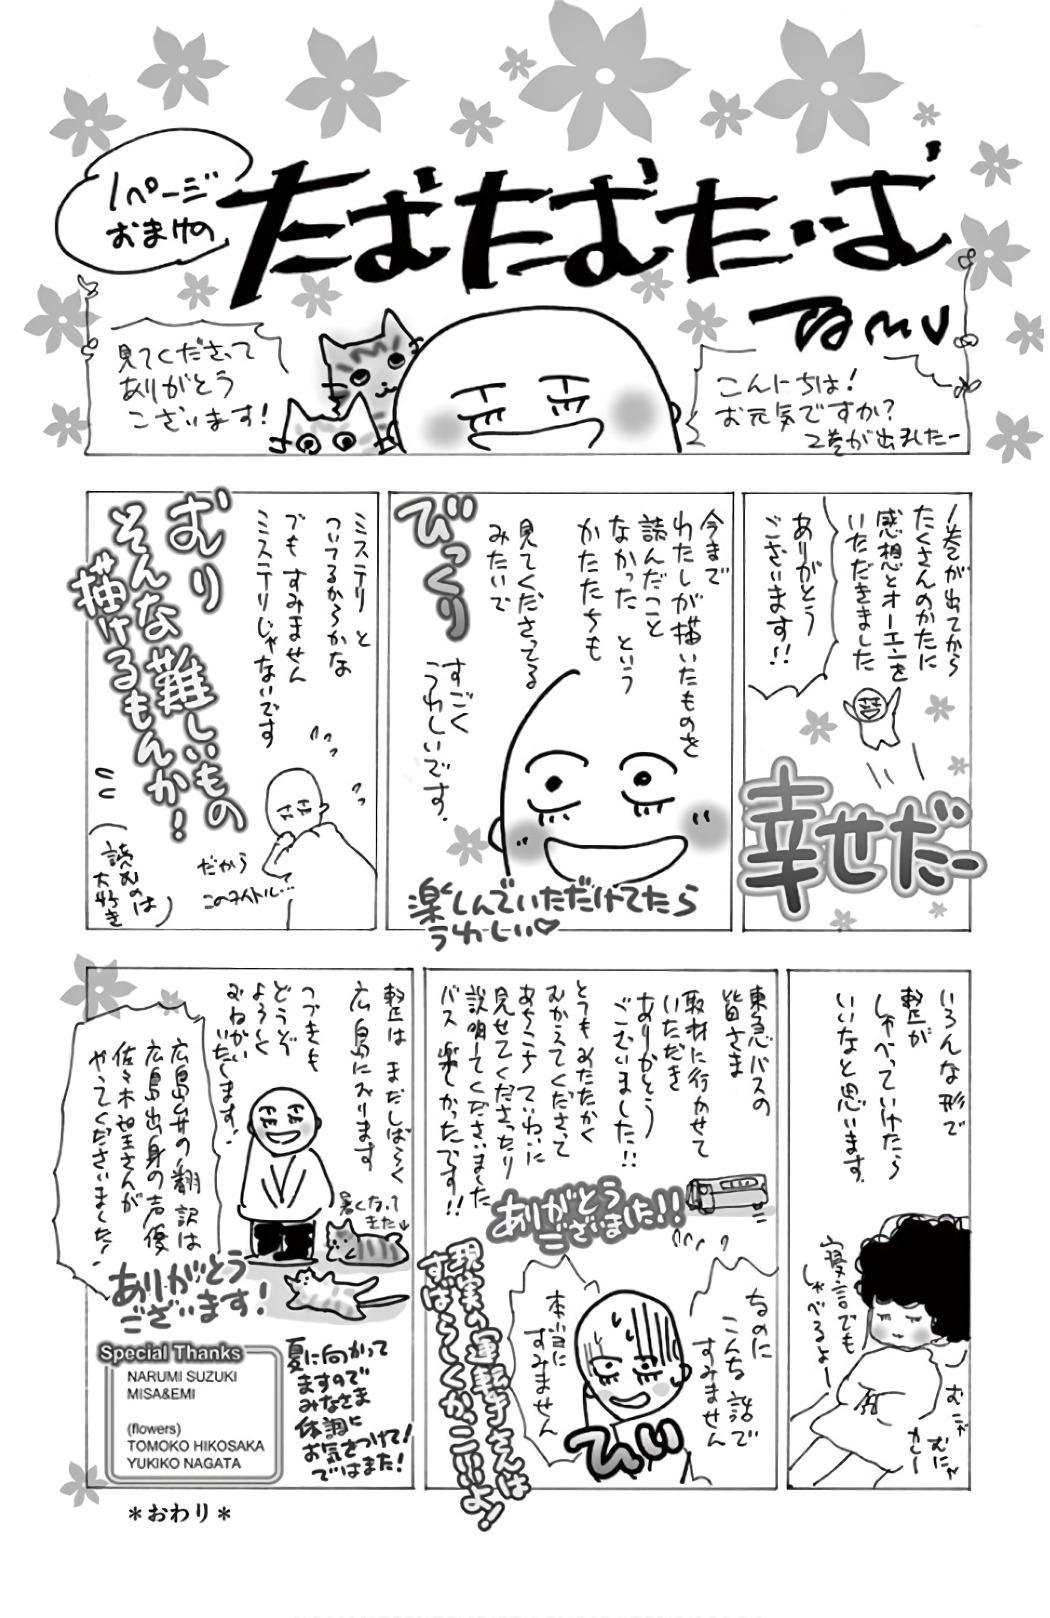 1ページ
おまけの
たむたむたーいむ
TAMU
こんにちは!
お元気ですか?
2巻が出ましたー
見てくださって
ありがとう
ございます!
1巻が出てから
たくさんのかたに
感想とオーエンを
いただきました
ありがとう
ございます!!
幸せだー
今まで
わたしが描いたものを
読んだこと
なかった という
かたたちも
見てくださってる
みたいで
びっくり
すごく
うれしいです。
楽しんでいただけてたら
うれしい♡
ミステリと
ついてるからかな
でもすみません
ミステリじゃないです
むり
そんな難しいもの
描けるもんか!
だから
このタイトル…
(読むのは
大好き)
いろんな形で
整が
しゃべっていけたら
いいなと思います。
寝言でも
しゃべるよー
むにゃ
むにゃ
カレー
東急バスの
皆さま
取材に行かせて
いただき
ありがとう
ございました!!
とてもあたたかく
むかえてくださって
あちこちていねいに
見せてくださったり
説明してくださいました
バス楽しかったです!!
ありがとう
ございました!!
なのに
こんな話で
すみません
本当に
すみません
ひいい
現実の運転手さんは
すばらしくかっこいいよ!
整はまだしばらく
広島におります
つづきも
どうぞ
よろしく
おねがい
いたします!
暑くなって
きた↓
広島弁の翻訳は
広島出身の声優
佐々木望さんが
やってくださいました!
ありがとう
ございます!
夏に向かって
ますので
みなさま
体調に
お気をつけて!
ではまた!
Special Thanks
NARUMI SUZUKI
MISA&EMI
(flowers)
TOMOKO HIKOSAKA
YUKIKO NAGATA
＊おわり＊